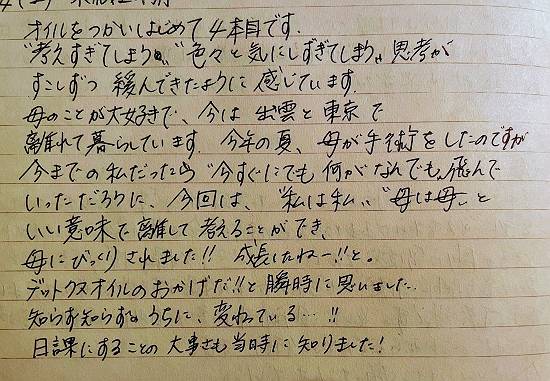 オイルをつかいはじめて4本目です.
"考えすぎてしまう"。"色々と気にしすぎてしまう"思考が
すこしずつ 緩んできたように 感じています.
母のことが大好きで、今は 出雲と東京で
離れて暮らしています. 今年の夏、母が手術をしたのですが
今までの私だったら"今すぐにでも 何がなんでも"飛んで
いっただろうに、今回は、"私は私"、"母は母"と
いい意味で 離して 考えることができ、
母にびっくりされました!! 成長したねー!!と。
デットクスオイルのおかげだ!!と 瞬時に思いました.
知らず知らずのうちに、変わっている…!!
日課にすることの 大事さも 当時に 知りました!